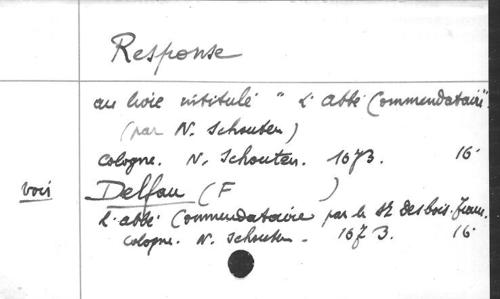 Response
au livre intitulé " L'abbé Commendataire"
(par N. Schouten)
Cologne. N. Schouten. 1673. 16°
voir Delfau (F )
L'abbé Commendataire par le Sr des bois-franc.
Cologne. N. Schouten. 1673. 16°